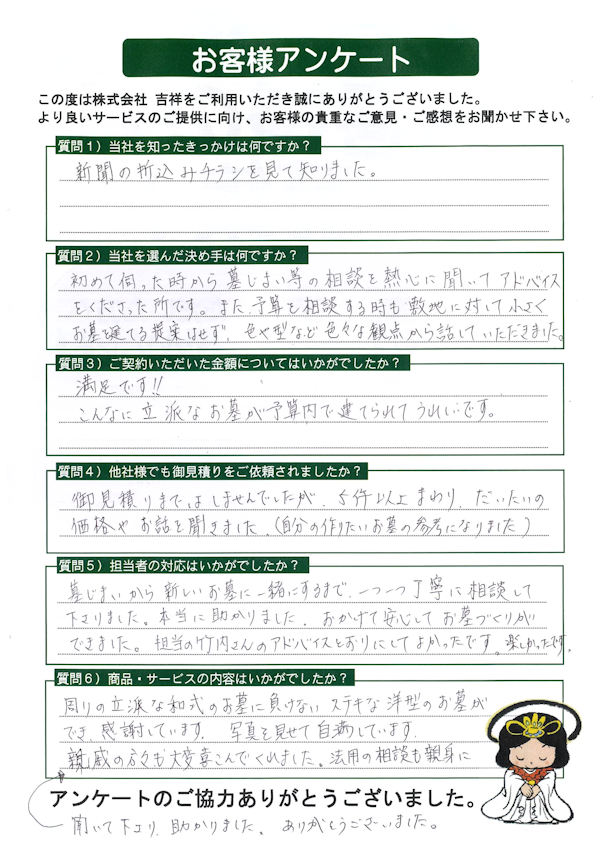 お客様アンケート
この度は株式会社 吉祥をご利用いただき誠にありがとうございました。
より良いサービスのご提供に向け、お客様の貴重なご意見・ご感想をお聞かせ下さい。
質問1）当社を知ったきっかけは何ですか？
新聞の折込みチラシを見て知りました。
質問2）当社を選んだ決め手は何ですか？
初めて伺った時から墓じまい等の相談を熱心に聞いてアドバイス
をくださった所です。また予算を相談する時も敷地に対して小さく
お墓を建てる提案はせず、色や型など色々な観点から話していただきました。
質問3）ご契約いただいた金額についてはいかがでしたか？
満足です!!
こんなに立派なお墓が予算内で建てられてうれしいです。
質問4）他社様でも御見積りをご依頼されましたか？
御見積りまではしませんでしたが、5件以上まわり、だいたいの
価格やお話を聞きました。(自分の作りたいお墓の参考になりました)
質問5）担当者の対応はいかがでしたか？
墓じまいから新しいお墓に一緒にするまで、一つ一つ丁寧に相談して
下さりました。本当に助かりました。おかげで安心してお墓づくりが
できました。担当の竹内さんのアドバイスどおりにしてよかったです。楽しかったです。
質問6）商品・サービスの内容はいかがでしたか？
周りの立派な和式のお墓に負けないステキな洋型のお墓が
でき、感謝しています。写真を見せて自慢しています。
親戚の方々も大変喜こんでくれました。法用の相談も親身に
アンケートのご協力ありがとうございました。
聞いて下さり、助かりました。ありがとうございました。